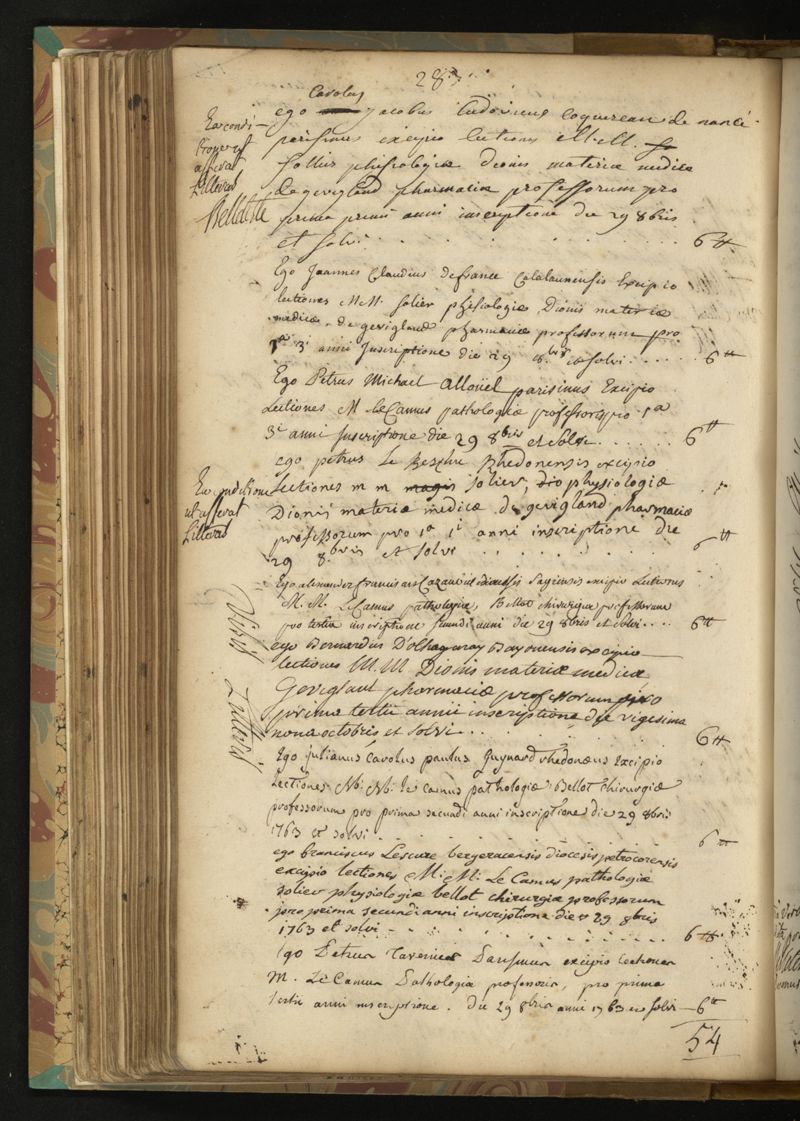 28
Carolus
ego jacobus Ludovicus coquereau de
parisinus excipio lectiones M.M.
Sollier phisiologiæ dionis materiæ medicæ
De gevigland pharmaciæ professorum pro
prima primi anni inscriptione die 29 8bris
et solvi . . . . 6 tt
Ego Joannes Claudius defrance Catalaunensis Excipio
lectiones M.M. Solier phisiologiæ Dionis materiæ
medicæ, de gevigland pharmaciæ professorum pro
1a 3i anni Inscriptione die 29 8.bris et solvi . . . . 6 tt
Ego Petrus Michael Alloüel parisinus Excipio
Lectiones M LeCamus pathologiæ professoris pro 1a
3i anni Inscriptione die 29 8bris et solvi . . . . 6 tt
ego petrus Le Rhedonensis excipio
Lectiones m m Solier, physiologiæ
Dionis materiæ medicæ, de gevigland pharmaciæ
professorum pro 1a 1i anni inscriptione die
29 8.bris et solvi . . . . 6 tt
Ego alexander franciscus Sagiensis excipio Lectiones
M. M. LeCamus pathologiæ, Bellot chirurgiæ professorum
pro tertia inscriptione secundi anni die 29 8bris et solvi . . . . 6 tt
ego Bernardus D'olhagaray Bayonensis excipio
lectiones M.M Dionis materiæ medicæ
Gevigland pharmaciæ professorum pro
prima tertii annii inscriptione die vigesima
nona octobris et solvi . . . . 6 tt
Ego julianus Carolus paulus Guynard rhedonæus Excipio
Lectiones le camus pathologiæ, Bellot chirurgiæ
professorum pro prima secundi anni inscriptione die 29 8bris
1763 et solvi . . . . 6 tt
ego franciscus Lescure bergeracensis diocesis petrocorensis
excipio lectiones M. M. Le Camus pathologiæ
solier physiologiæ bellot chirurgiæ professorum
pro prima secundi anni inscriptione die 29 8bris
1763 et solvi . . . . 6 tt
Ego Petrus Tavernier Parisinus excipio lectiones
M. Le Camus Pathologiæ professoris, pro prima
tertii anni inscriptione. Die 29 8bris anni 1763 et solvi 6 tt
54
Ea conditione
ut afferat
Litteras
Belleteste
Ea conditione
ut afferat
Litteras
Vidi Litteras